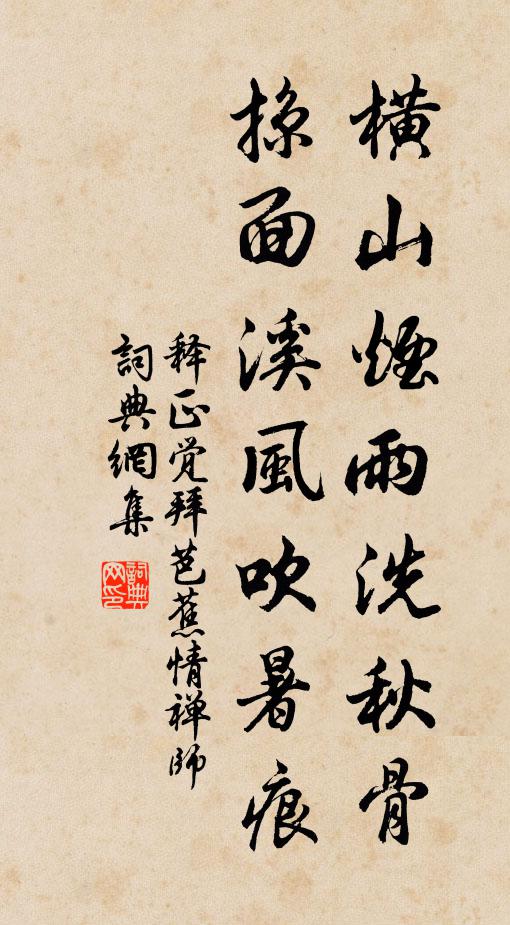 橫山煙雨洗秋骨
掠面溪風吹暑痕
释正觉拜芭蕉情禅师
詞典網集
詞典
网印